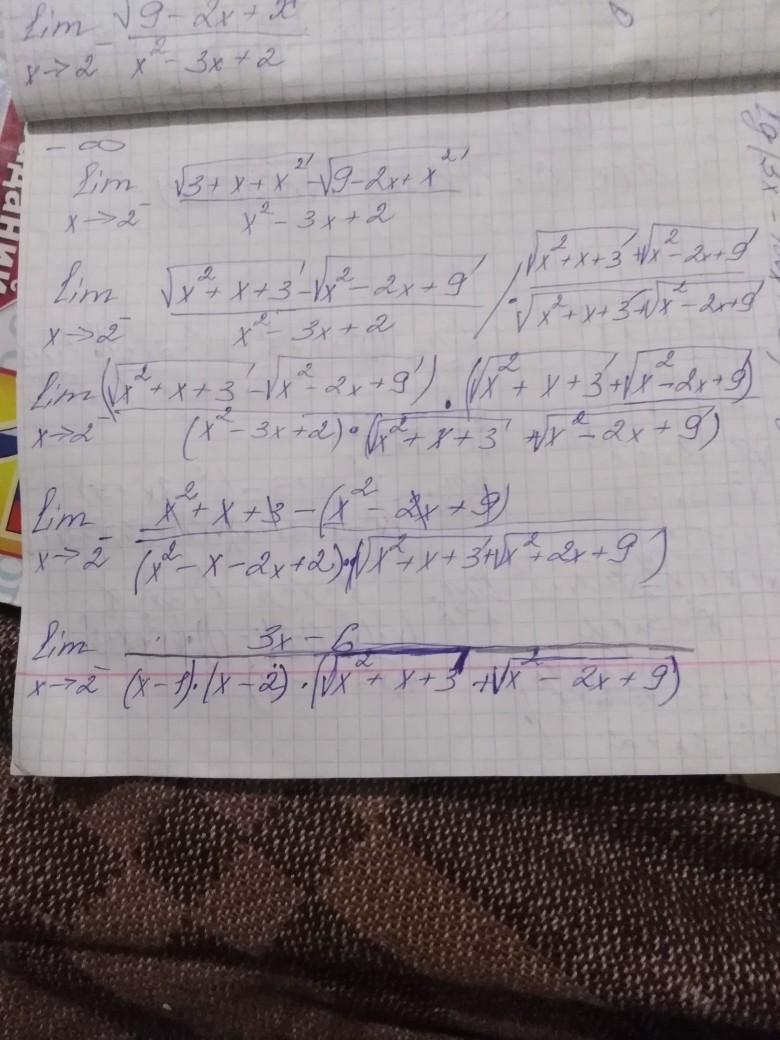 lim x→2⁻ √(9-2x+x / x²-3x+2
-∞
lim x→2⁻ (√(3+x+x²) - √(9-2x+x²)) / (x²-3x+2)
lim x→2⁻ (√(x²+x+3) - √(x²-2x+9)) / (x²-3x+2) · (√(x²+x+3) + √(x²-2x+9)) / (√(x²+x+3) + √(x²-2x+9))
lim x→2⁻ (√(x²+x+3) - √(x²-2x+9)) · (√(x²+x+3) + √(x²-2x+9)) / (x²-3x+2) · (√(x²+x+3) + √(x²-2x+9))
lim x→2⁻ x²+x+3-(x²-2x+9) / (x²-x-2x+2)·(√(x²+x+3) + √(x²+2x+9))
lim x→2⁻ 3x-6 / (x-1)·(x-2)·(√(x²+x+3) + √(x²-2x+9))